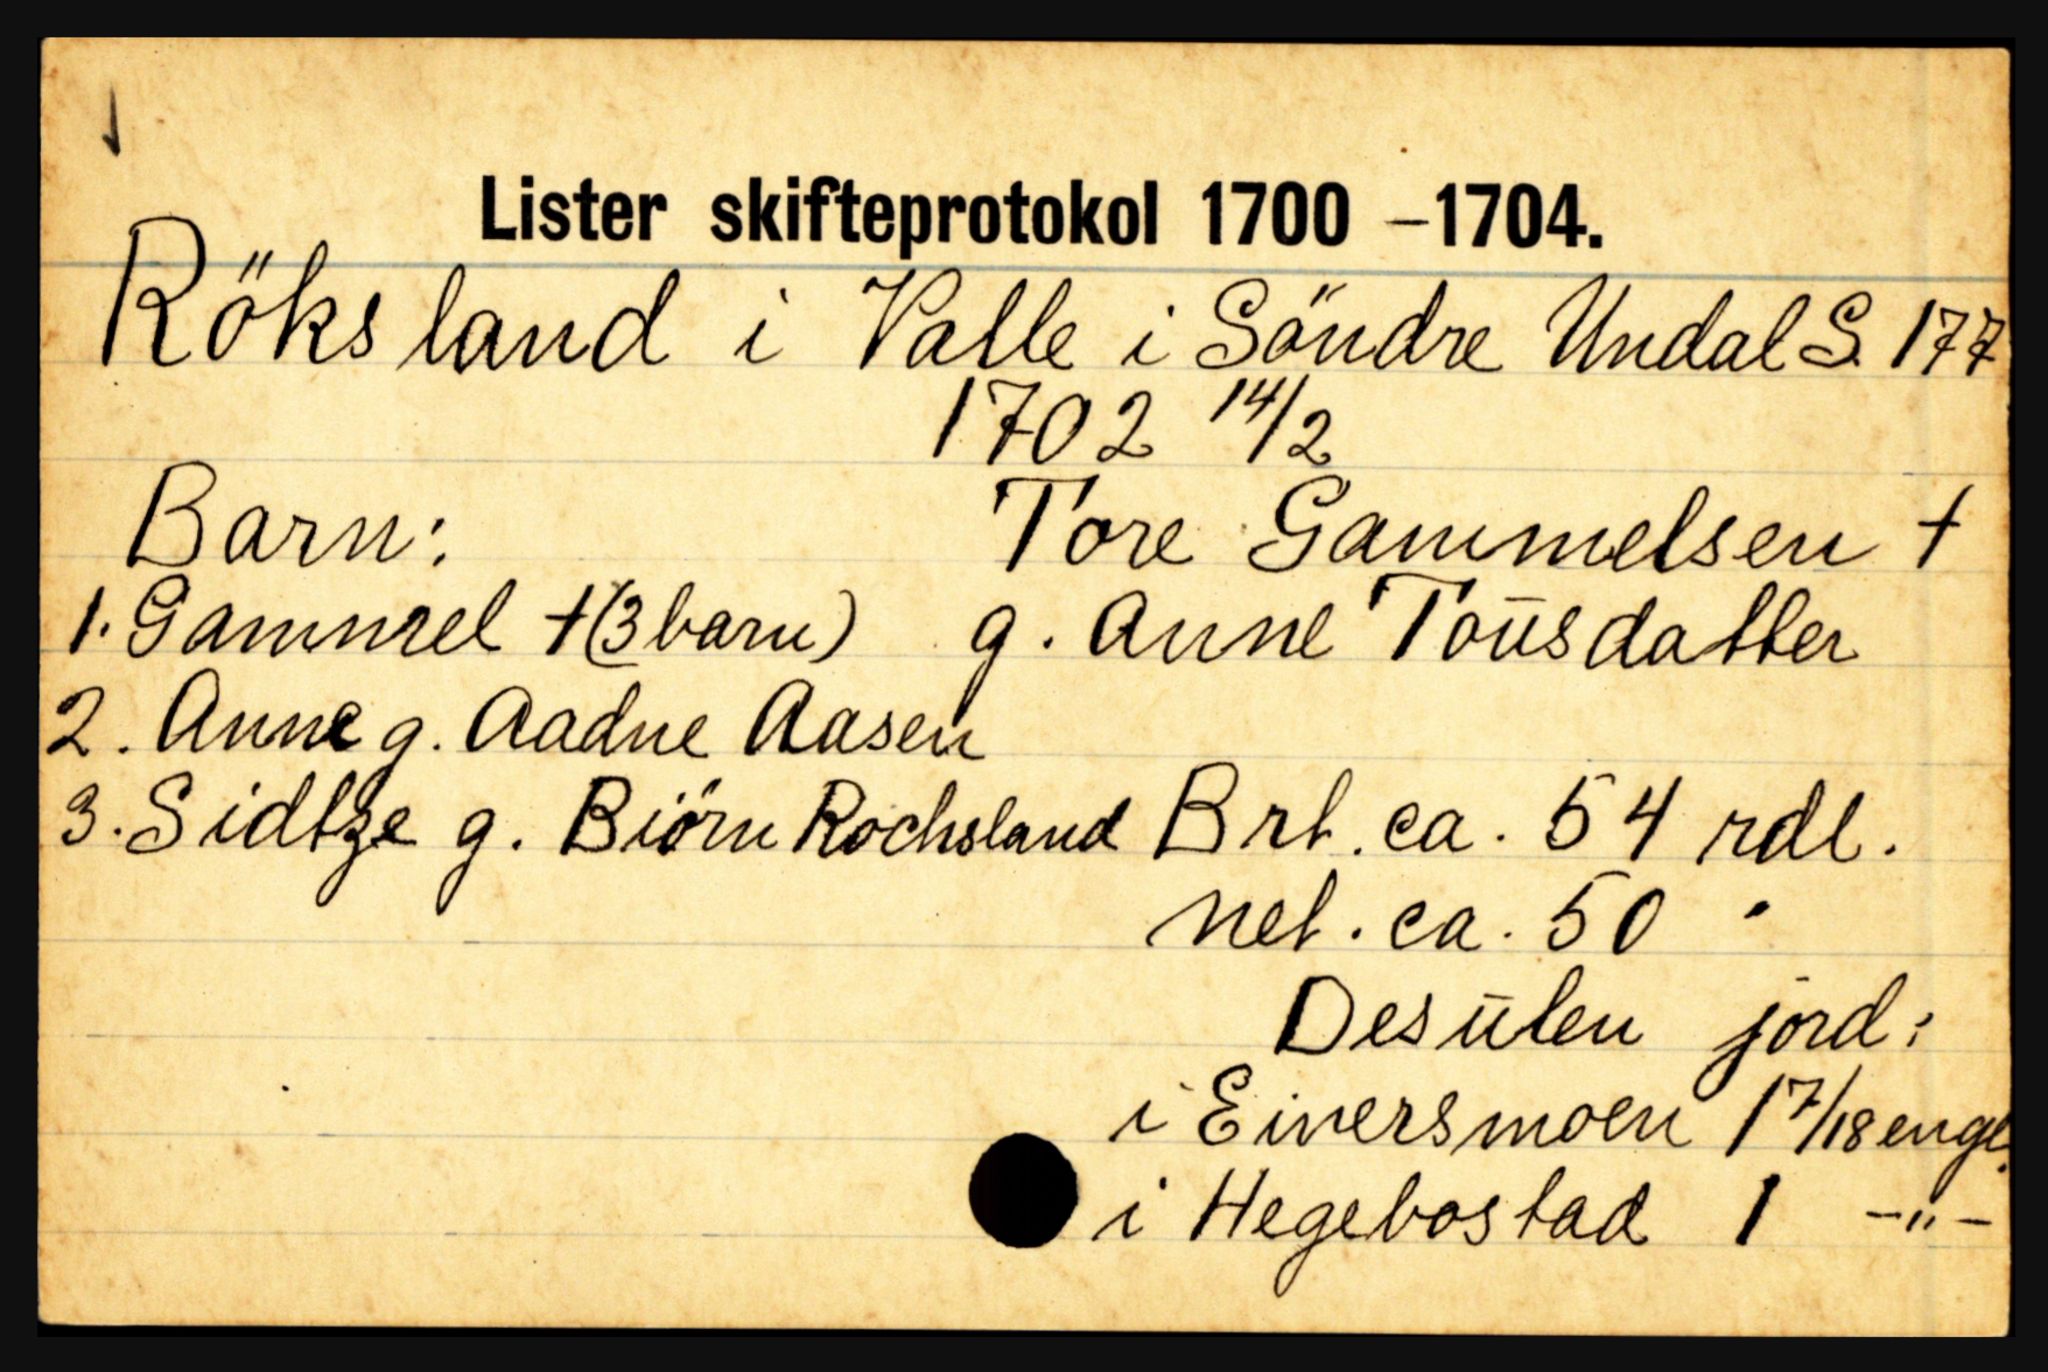 Lister skifteprotokol 1700 – 1704.
Röksland i Valle i Söndre Undal S. 177
1702 14/2
Barn: Tore Gammelsen †
1. Gammel †(3 barn) g. Anne Toūsdatter
2. Anne g. Aadne Aasen
3. Sidtze g. Biörn Rochsland Brt. ca. 54 rdl.
net. ca. 50 "
Desūten jord:
i Eiversmoen 1 7/18 engl.
i Hegebostad 1 –"–